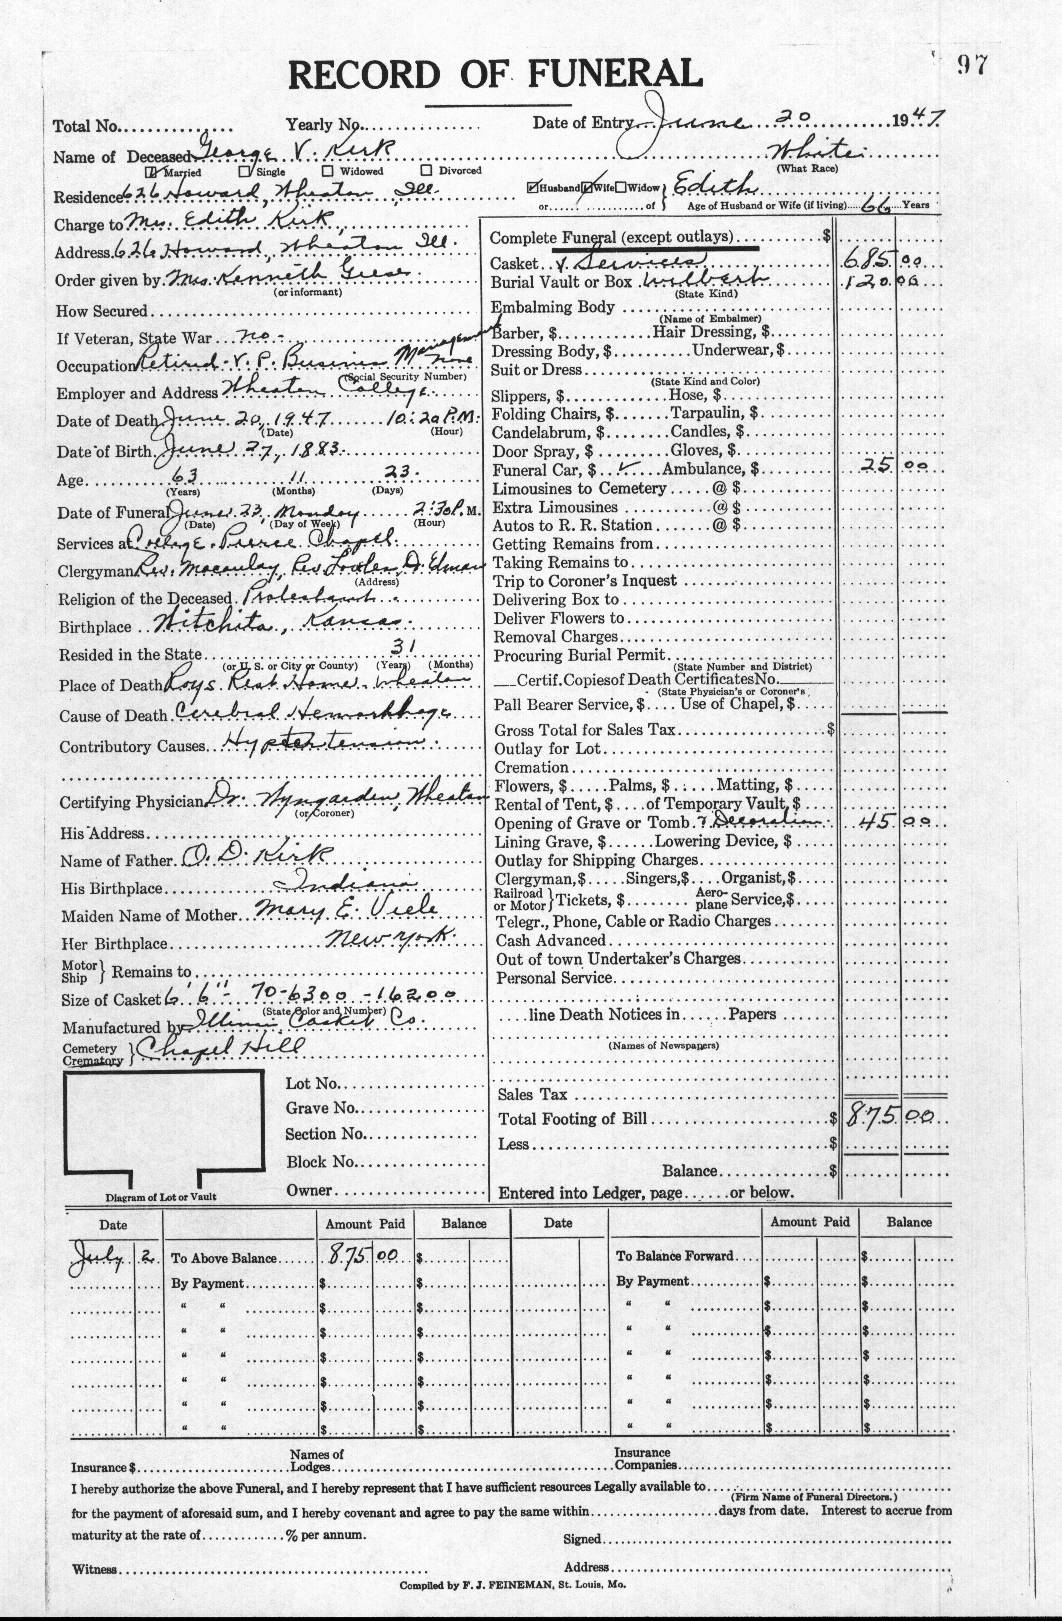 97
RECORD OF FUNERAL
Total No. Yearly No. Date of Entry June 20 1947
Name of Deceased George V. Kirk White
Married Single Widowed Divorced (What Race)
Residence 626 Howard, Wheaton, Ill. Husband Wife Widow } Edith
or of Age of Husband or Wife (if living) 66 Years
Charge to Mrs. Edith Kirk,
Address 626 Howard, Wheaton Ill.
Order given by Mrs. Kenneth Gieser
(or informant)
How Secured
If Veteran, State War no -
Occupation Retired - V. P. Business Management none
(Social Security Number)
Employer and Address Wheaton College
Date of Death June 20, 1947 10:20 P.M.
(Date) (Hour)
Date of Birth June 27, 1883
Age 63 11 23
(Years) (Months) (Days)
Date of Funeral June 23, Monday 2:30 P.M.
(Date) (Day of Week) (Hour)
Services at College Pierce Chapel
Clergyman Rev. Macaulay, Rev Dr. Edman
(Address)
Religion of the Deceased Protestant
Birthplace Witchita, Kansas
Resided in the State 31
(or U. S. or City or County) (Years) (Months)
Place of Death Roys Rest Home Wheaton
Cause of Death Cerebral Hemorrhage
Contributory Causes Hypertension
Certifying Physician Dr. Wyngarden, Wheaton
(or Coroner)
His Address
Name of Father O. D. Kirk
His Birthplace Indiana
Maiden Name of Mother Mary E. Viele
Her Birthplace New York
Motor Ship } Remains to
Size of Casket 6' 6" - 70-6300 - 16200
(State Color and Number)
Manufactured by Illinois Casket Co.
Cemetery Crematory } Chapel Hill
Lot No.
Grave No.
Section No.
Block No.
Owner
Diagram of Lot or Vault
Complete Funeral (except outlays) $
Casket & Services 685 00
Burial Vault or Box Wilbert 120 00
(State Kind)
Embalming Body
(Name of Embalmer)
Barber, $ Hair Dressing, $
Dressing Body, $ Underwear, $
Suit or Dress
(State Kind and Color)
Slippers, $ Hose, $
Folding Chairs, $ Tarpaulin, $
Candelabrum, $ Candles, $
Door Spray, $ Gloves, $
Funeral Car, $ ✓ Ambulance, $ 25 00
Limousines to Cemetery @ $
Extra Limousines @ $
Autos to R. R. Station @ $
Getting Remains from
Taking Remains to
Trip to Coroner's Inquest
Delivering Box to
Deliver Flowers to
Removal Charges
Procuring Burial Permit
(State Number and District)
Certif. Copies of Death Certificates No.
(State Physician's or Coroner's
Pall Bearer Service, $ Use of Chapel, $
Gross Total for Sales Tax $
Outlay for Lot
Cremation
Flowers, $ Palms, $ Matting, $
Rental of Tent, $ of Temporary Vault, $
Opening of Grave or Tomb & Decoration 45 00
Lining Grave, $ Lowering Device, $
Outlay for Shipping Charges
Clergyman, $ Singers, $ Organist, $
Railroad or Motor } Tickets, $ Aeroplane Service, $
Telegr., Phone, Cable or Radio Charges
Cash Advanced
Out of town Undertaker's Charges
Personal Service
line Death Notices in Papers
(Names of Newspapers)
Sales Tax
Total Footing of Bill $ 875 00
Less $
Balance $
Entered into Ledger, page or below.
Date Amount Paid Balance Date Amount Paid Balance
July 2 To Above Balance 875 00 $ To Balance Forward $
By Payment $ $ By Payment $ $
" " $ $ " " $ $
" " $ $ " " $ $
" " $ $ " " $ $
" " $ $ " " $ $
" " $ $ " " $ $
" " $ $ " " $ $
Insurance $ Names of Lodges Insurance Companies
I hereby authorize the above Funeral, and I hereby represent that I have sufficient resources Legally available to
(Firm Name of Funeral Directors.)
for the payment of aforesaid sum, and I hereby covenant and agree to pay the same within days from date. Interest to accrue from
maturity at the rate of % per annum. Signed
Witness Address
Compiled by F. J. FEINEMAN, St. Louis, Mo.